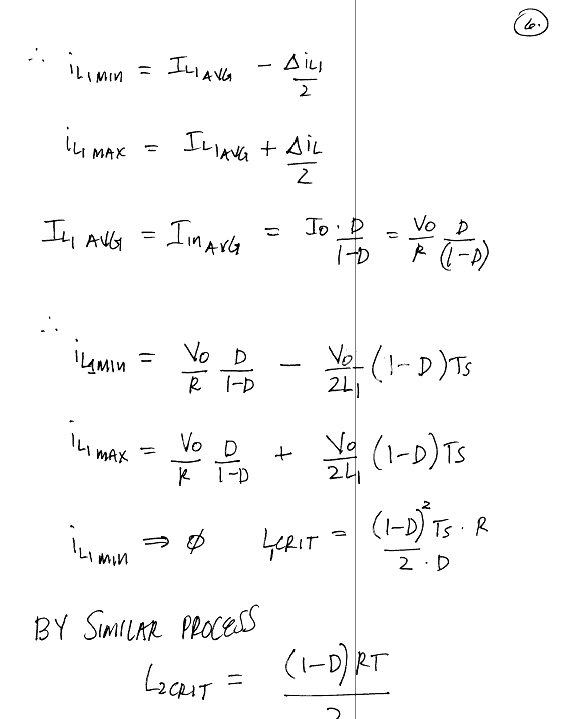 6.
∴ iL1 MIN = IL1 AVG - ΔiL1/2
iL1 MAX = IL1AVG + ΔiL/2
IL1 AVG = Iin AVG = Io · D/1-D = Vo/R D/(1-D)
∴ iL1MIN = Vo/R D/1-D - Vo/2L1 (1-D)Ts
iL1 MAX = Vo/R D/1-D + Vo/2L1 (1-D)Ts
iL1 MIN ⇒ ∅ L1CRIT = (1-D)²Ts · R/2 · D
BY SIMILAR PROCESS
L2CRIT = (1-D)RT/2